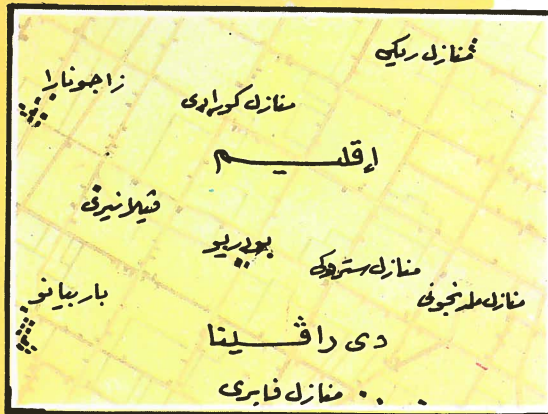 منازل ريكى
زاجونارا
منازل كورادى
إقليم
ڤيلا نيرى
بودريو
منازل ستروكى
منازل ملدنجونى
باربيانو
دى راڤينا
منازل فابرى